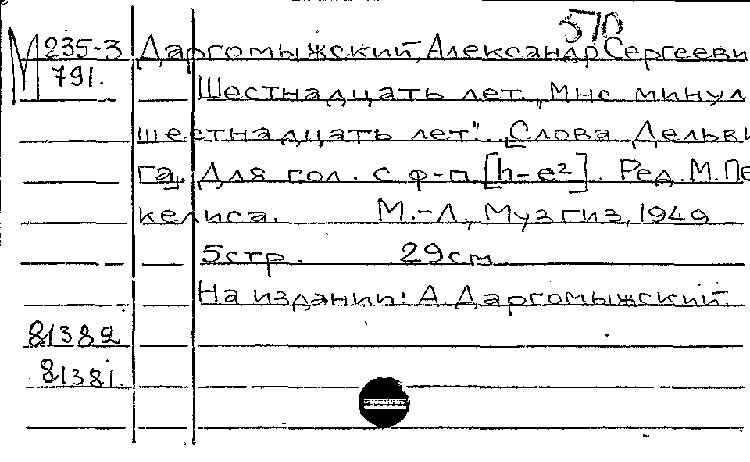 570
М 235-3 Даргомыжский, Александр Сергееви
791.
Шестнадцать лет. „Мнс минул
шестнадцать лет". [Слова Дельви
га]. Для гол. с ф-п. [h-e²]. Ред. М. Пе
келиса. М.-Л., Музгиз, 1949
5 стр. 29 см
На издании: А. Даргомыжский
81382
81381.